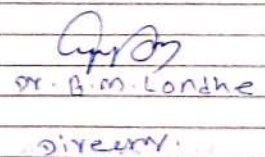 Dr. B.M. Londhe
Director.